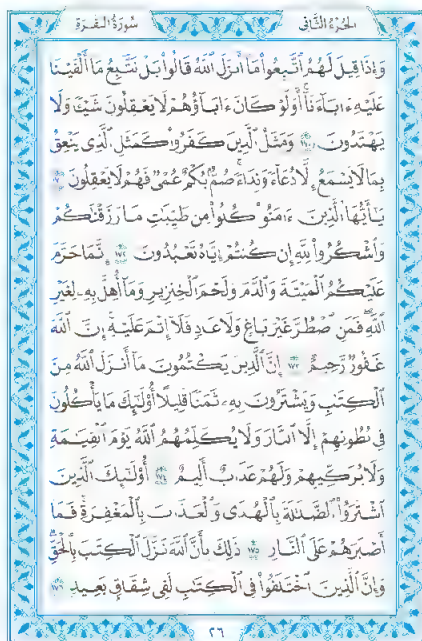 الجزء الثاني سورة البقرة
وَإِذَا قِيلَ لَهُمُ ٱتَّبِعُوا۟ مَآ أَنزَلَ ٱللَّهُ قَالُوا۟ بَلْ نَتَّبِعُ مَآ أَلْفَيْنَا
عَلَيْهِ ءَابَآءَنَآ أَوَلَوْ كَانَ ءَابَآؤُهُمْ لَا يَعْقِلُونَ شَيْـًٔا وَلَا
يَهْتَدُونَ ١٧٠ وَمَثَلُ ٱلَّذِينَ كَفَرُوا۟ كَمَثَلِ ٱلَّذِى يَنْعِقُ
بِمَا لَا يَسْمَعُ إِلَّا دُعَآءً وَنِدَآءً صُمٌّۢ بُكْمٌ عُمْىٌ فَهُمْ لَا يَعْقِلُونَ ١٧١
يَـٰٓأَيُّهَا ٱلَّذِينَ ءَامَنُوا۟ كُلُوا۟ مِن طَيِّبَـٰتِ مَا رَزَقْنَـٰكُمْ
وَٱشْكُرُوا۟ لِلَّهِ إِن كُنتُمْ إِيَّاهُ تَعْبُدُونَ ١٧٢ إِنَّمَا حَرَّمَ
عَلَيْكُمُ ٱلْمَيْتَةَ وَٱلدَّمَ وَلَحْمَ ٱلْخِنزِيرِ وَمَآ أُهِلَّ بِهِۦ لِغَيْرِ
ٱللَّهِ فَمَنِ ٱضْطُرَّ غَيْرَ بَاغٍ وَلَا عَادٍ فَلَآ إِثْمَ عَلَيْهِ إِنَّ ٱللَّهَ
غَفُورٌ رَّحِيمٌ ١٧٣ إِنَّ ٱلَّذِينَ يَكْتُمُونَ مَآ أَنزَلَ ٱللَّهُ مِنَ
ٱلْكِتَـٰبِ وَيَشْتَرُونَ بِهِۦ ثَمَنًا قَلِيلًا أُو۟لَـٰٓئِكَ مَا يَأْكُلُونَ
فِى بُطُونِهِمْ إِلَّا ٱلنَّارَ وَلَا يُكَلِّمُهُمُ ٱللَّهُ يَوْمَ ٱلْقِيَـٰمَةِ
وَلَا يُزَكِّيهِمْ وَلَهُمْ عَذَابٌ أَلِيمٌ ١٧٤ أُو۟لَـٰٓئِكَ ٱلَّذِينَ
ٱشْتَرَوُا۟ ٱلضَّلَـٰلَةَ بِٱلْهُدَىٰ وَٱلْعَذَابَ بِٱلْمَغْفِرَةِ فَمَآ
أَصْبَرَهُمْ عَلَى ٱلنَّارِ ١٧٥ ذَٰلِكَ بِأَنَّ ٱللَّهَ نَزَّلَ ٱلْكِتَـٰبَ بِٱلْحَقِّ
وَإِنَّ ٱلَّذِينَ ٱخْتَلَفُوا۟ فِى ٱلْكِتَـٰبِ لَفِى شِقَاقٍۭ بَعِيدٍ ١٧٦
٢٦